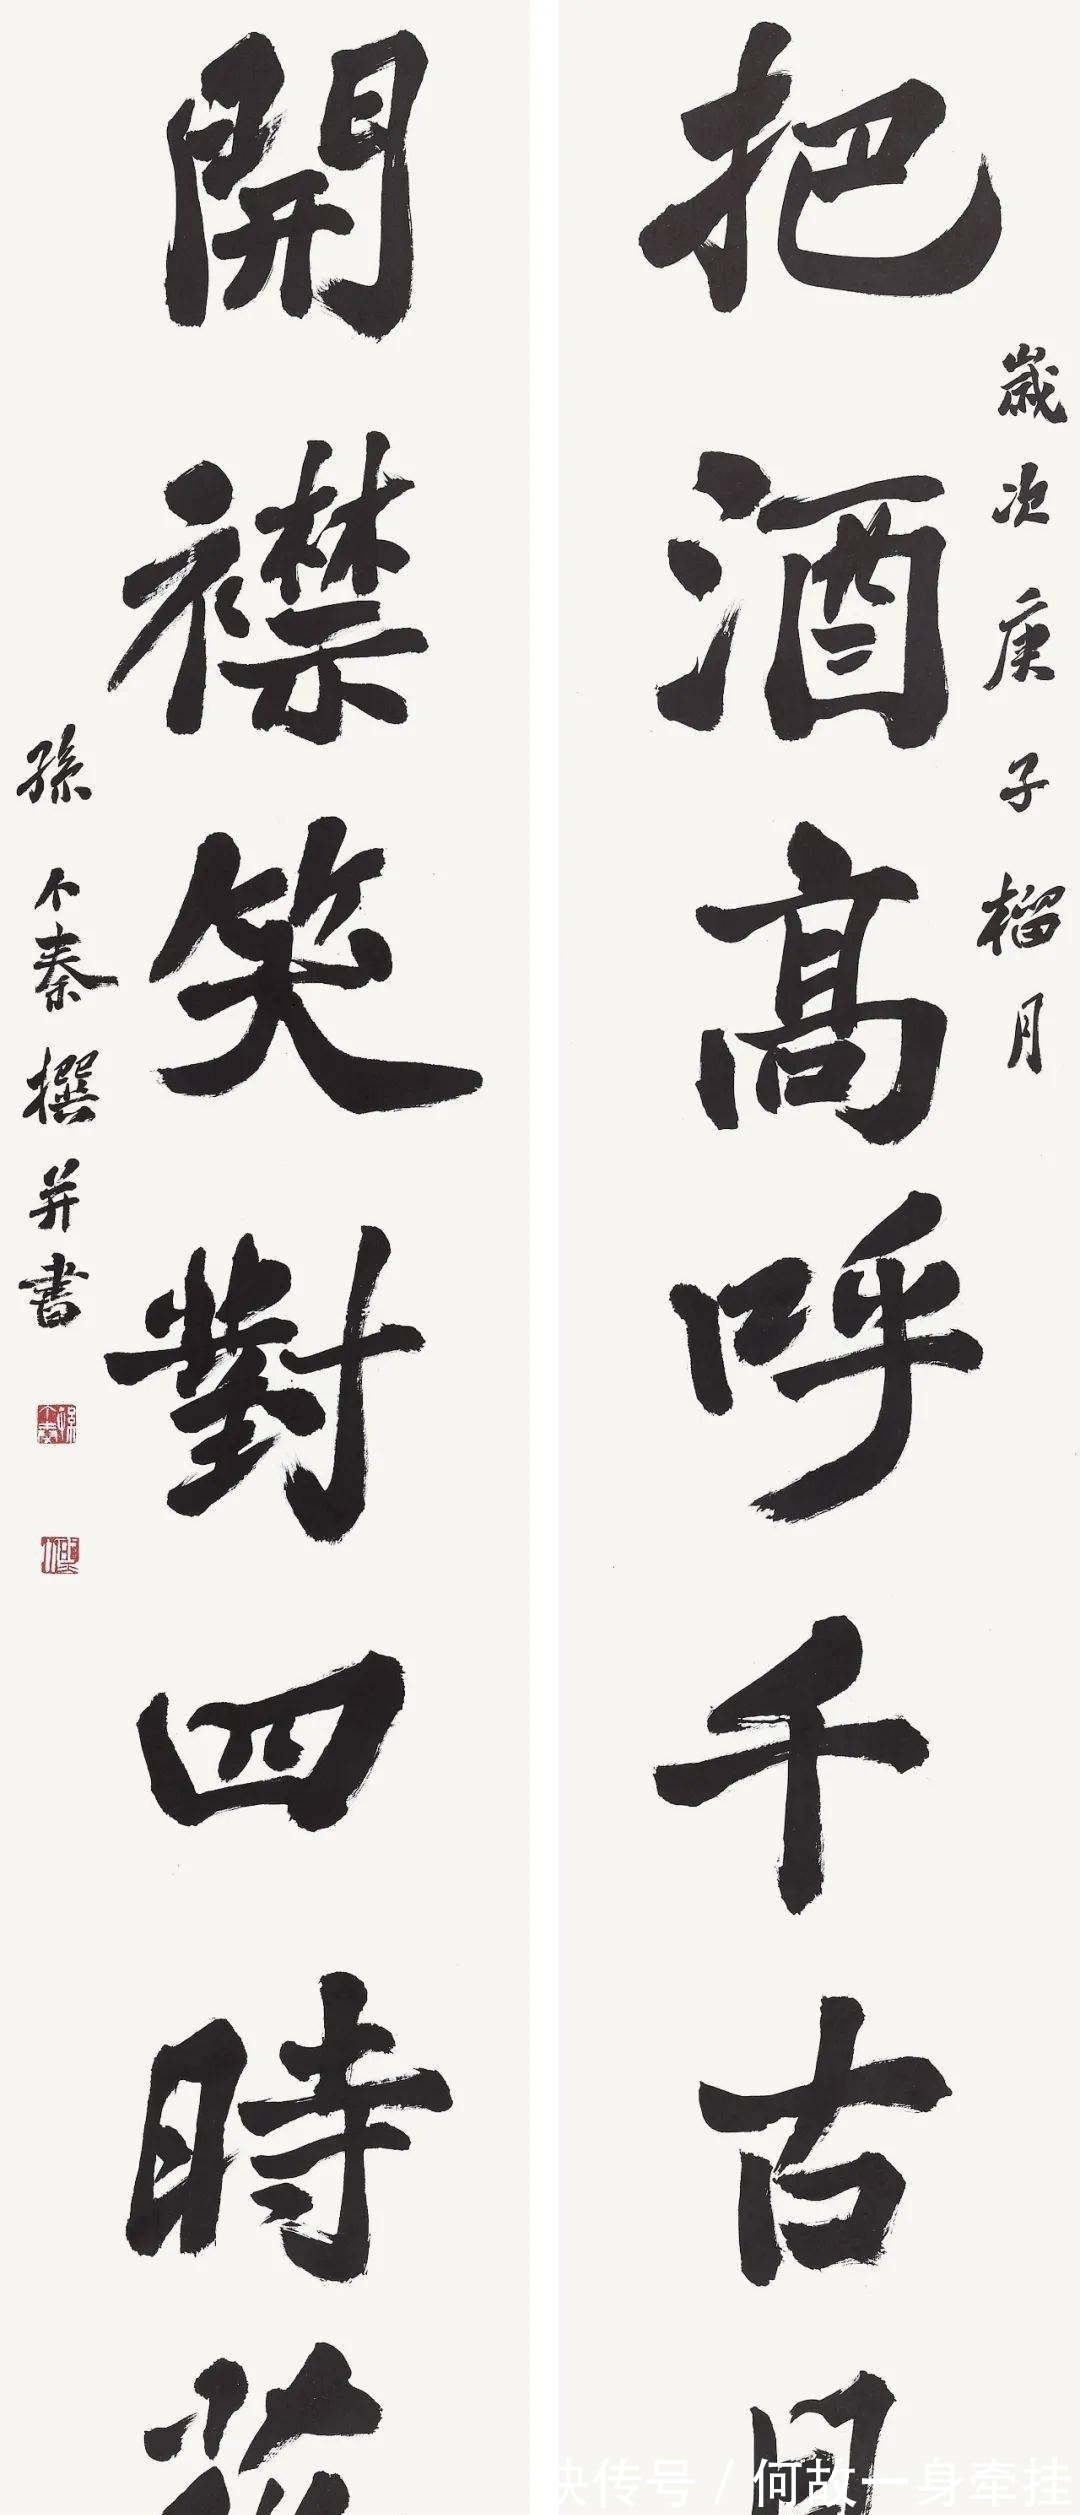 把酒高呼千古月
歲次庚子榴月
開襟笑對四時花
孫个秦撰并書
快传号 / 何故一身牵挂